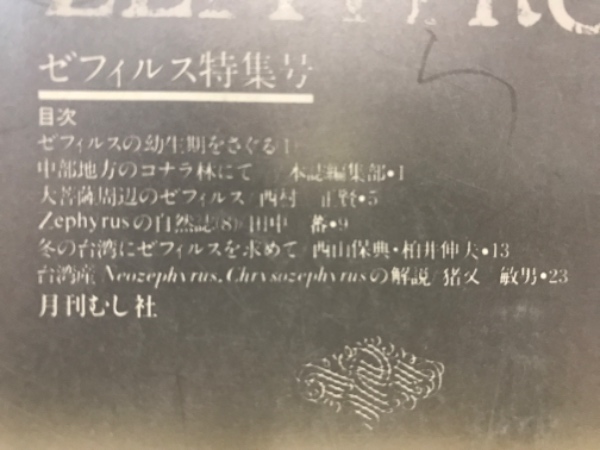 ZEPHYRUS
ゼフィルス特集号
目次
ゼフィルスの幼生期をさぐる
中部地方のコナラ林にて 本誌編集部•1
大菩薩周辺のゼフィルス/西村 正賢•5
Zephyrusの自然誌(8)/田中 蕃•9
冬の台湾にゼフィルスを求めて/西山保典・柏井伸夫•13
台湾産 Neozephyrus, Chrysozephyrusの解説/猪又 敏男•23
月刊むし社